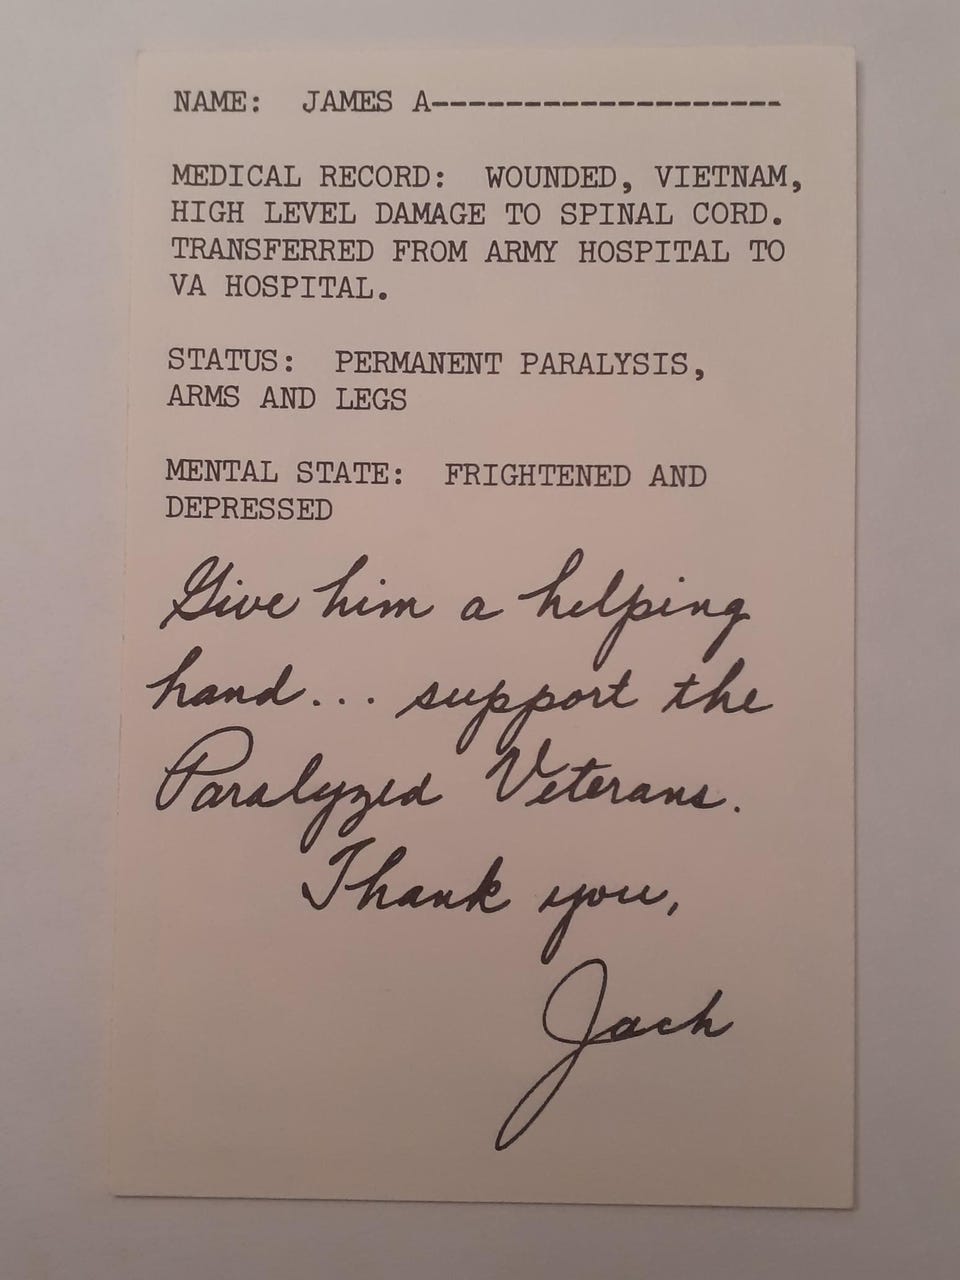 NAME: JAMES A-------------------
MEDICAL RECORD: WOUNDED, VIETNAM,
HIGH LEVEL DAMAGE TO SPINAL CORD.
TRANSFERRED FROM ARMY HOSPITAL TO
VA HOSPITAL.
STATUS: PERMANENT PARALYSIS,
ARMS AND LEGS
MENTAL STATE: FRIGHTENED AND
DEPRESSED
Give him a helping
hand... support the
Paralyzed Veterans.
Thank you,
Jack